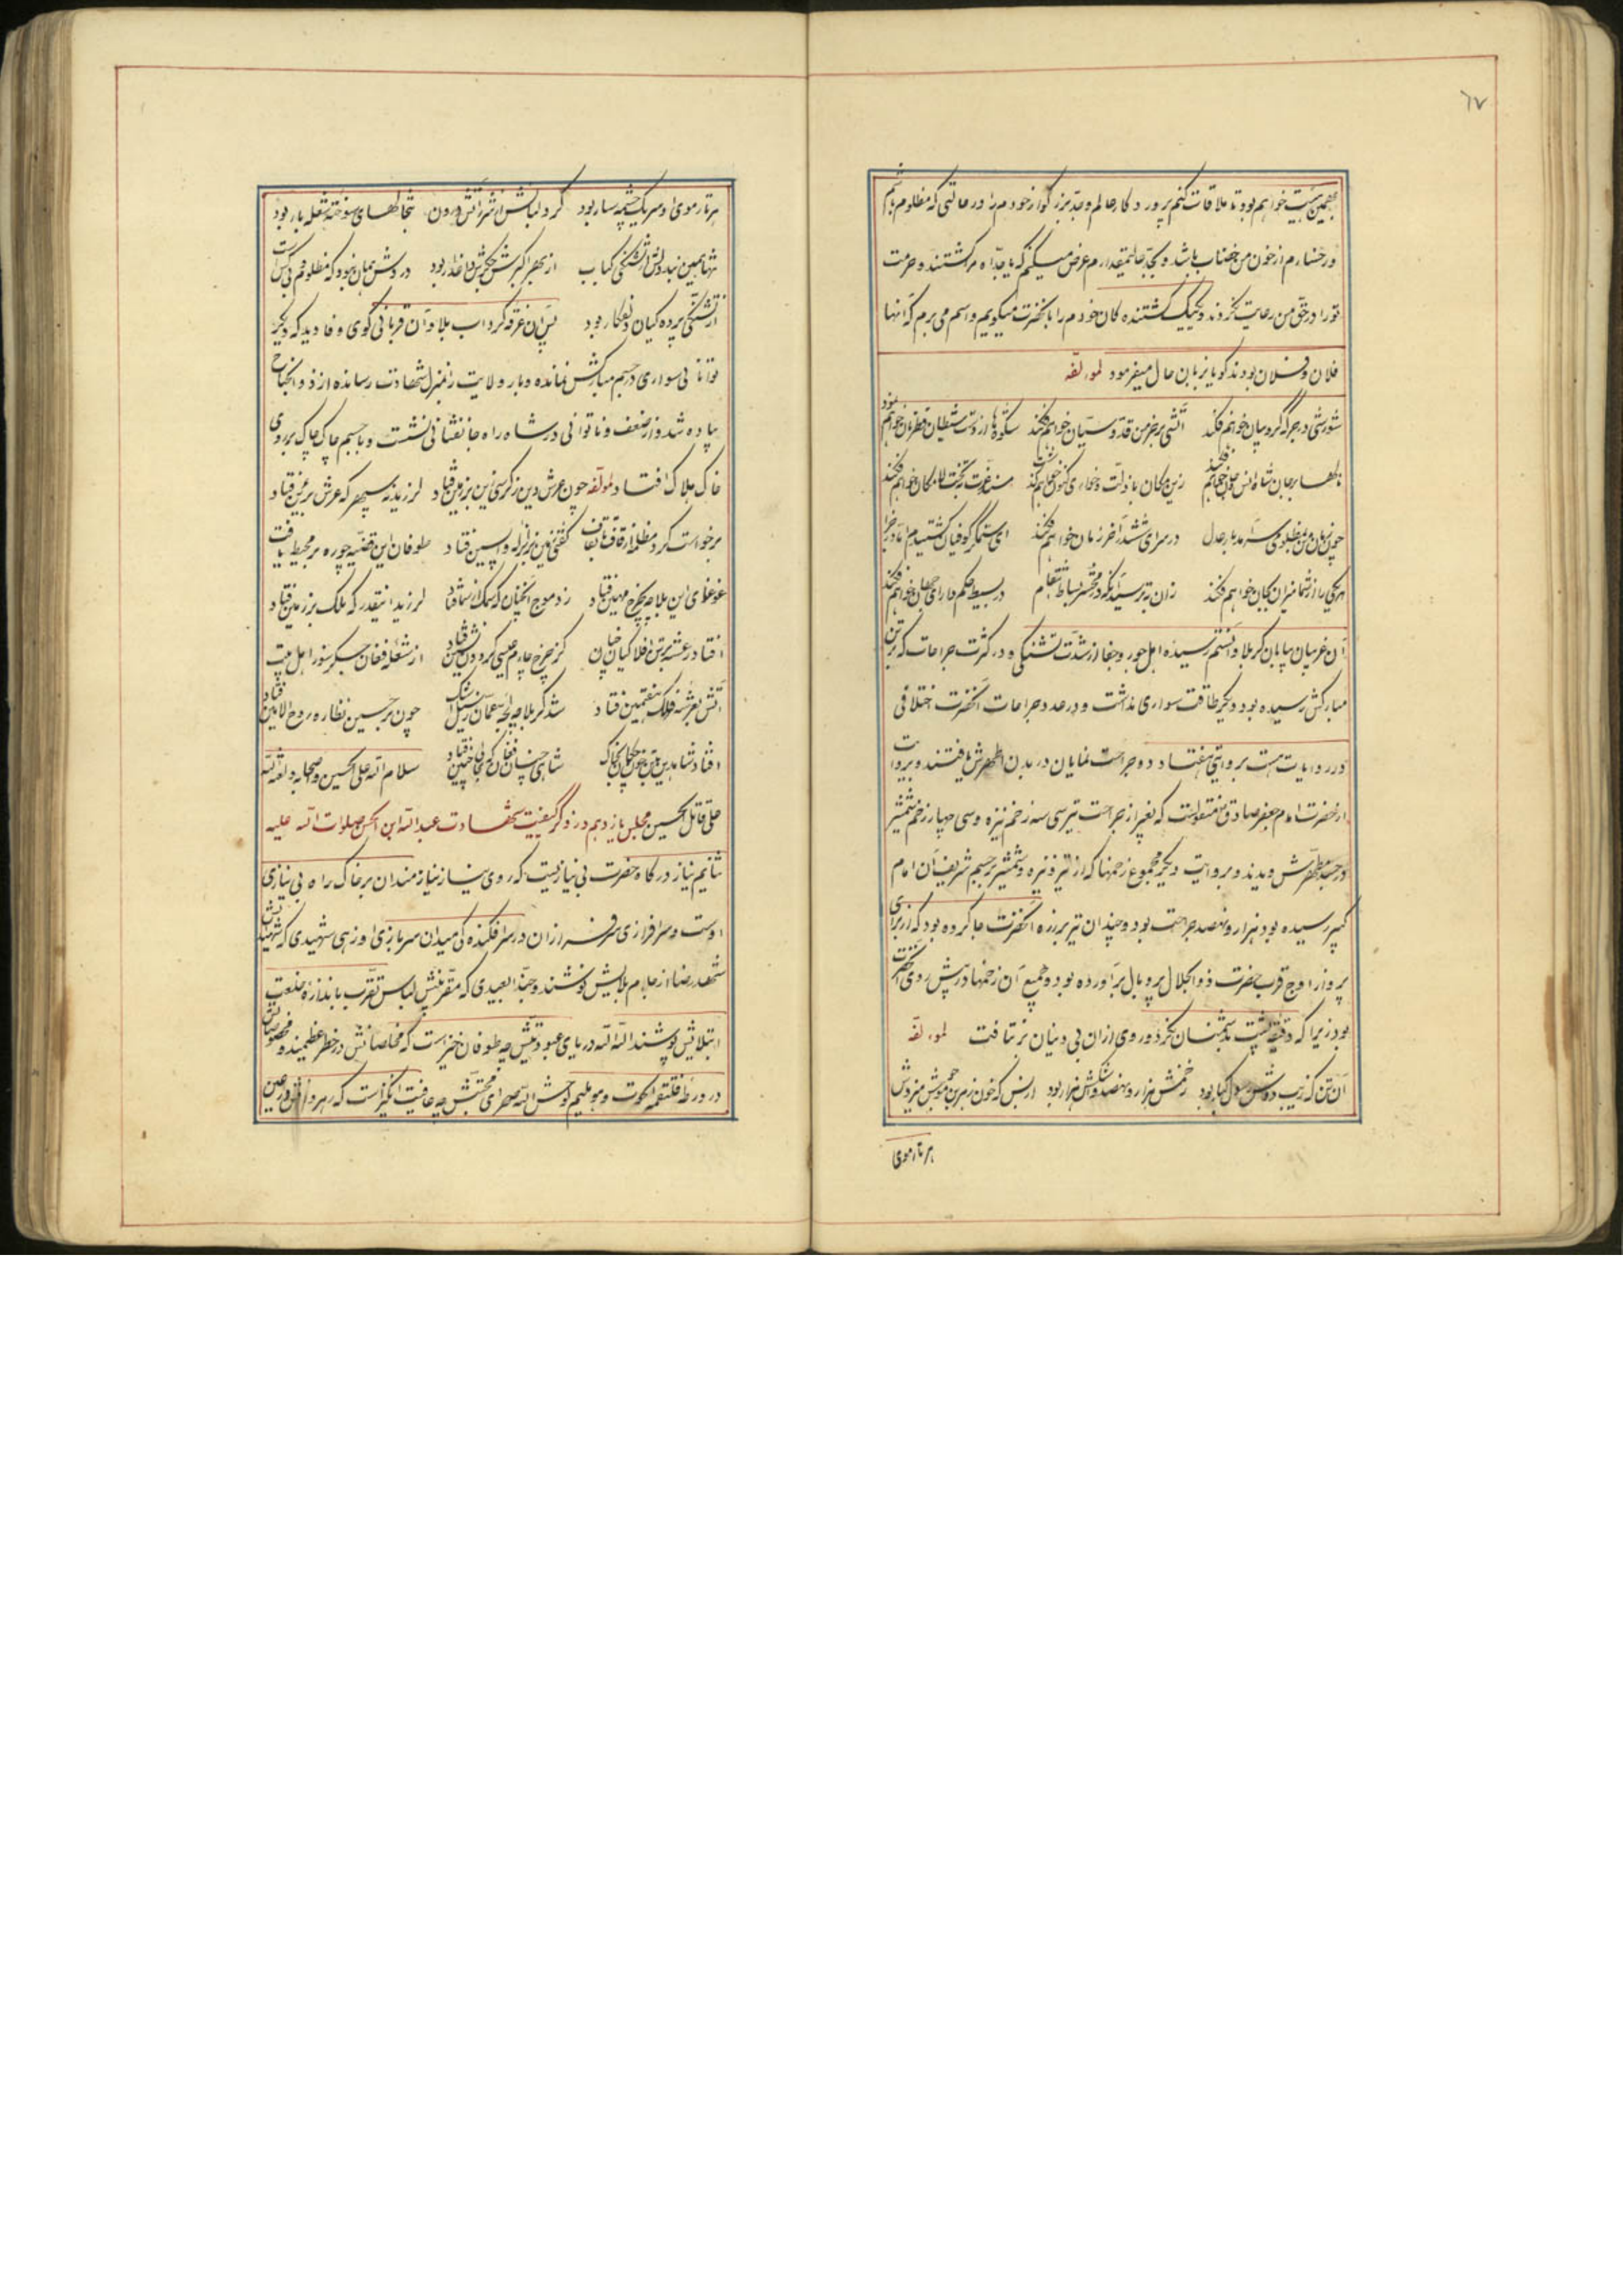 ٦٧
بهمین هیئت خواهم بود تا ملاقات کنم پروردکار عالم و جد بزرکوار خودم را در حالتی که مظلوم باشم
و رخسارم از خون من خضاب باشد و بجد عالیمقدارم عرض میکنم که یا جداه مرا کشتند و حرمت
تو را در حق من رعایت نکردند و یک یک کشنده کان خودم را بانحضرت میکویم و اسم می برم که آنها
فلان و فلان بودند کویا بزبان حال میفرمود لمولفه
شورشی در جرکه کروبیان خواهم فکند آتشی بر خرمن قدوسیان خواهم فکند شکوه ها از دست شیطان خواهم نمود
زین مکان با ذلت و خواری کنون خواهم فکند مسند عزت بتخت لامکان خواهم فکند
چون زبان من بمظلومی سرآمد یار عدل در سرای ششدر آخر زمان خواهم فکند ای ستمکر کوفیان کشتید مرا
هر یکی را از شما نیران بجان خواهم فکند زان بترسید آنکه در محشر بساط انتقام در بسیط حکم دارای جهان خواهم فکند
آن غریبان بیابان کربلا و آنستم رسیده اهل جور و جفا از شدت تشنکی و در کثرت جراحات که بر تن
مبارکش رسیده بود دیکر طاقت سواری نداشت و در عدد جراحات آنحضرت اختلافی
در روایات هست بروایتی هفتاد و دو جراحت نمایان در بدن اطهرش یافتند و بروایت
از حضرت امام جعفر صادق منقولست که بغیر از جراحت تیر سی سه زخم نیزه و سی چهار زخم شمشیر
در جسد مطهرش دیدند و بروایت دیکر مجموع زخمها که از تیر و نیزه و شمشیر بر جسم شریف آن امام
کبیر رسیده بود هزار و نهصد جراحت بود و چندان تیر بر زره آنحضرت جا کرده بود که از برای
پرواز اوج قرب حضرت ذو الجلال پر و بال برآورده بود و جمیع آن زخمها در پیش روی آنحضرت
بود زیرا که دقیقه پشت بدشمنان نکرد و روی از ان بی دینان برنتافت لمولفه
آن تن که زیب دوش رسول کبار بود زخمش هزار و نهصد و شکوش هزار بود از بس که خون ز هر بن مویش
هر تار موی
هر تار موی او سر یک چشمه سار بود کرد لباسش از شرر آتش درون بتخالهای سوخته شعله بار بود
تنها همین نبد دلش از تشنکی کباب از بهر اکبرش جکرش داغدار بود دردش همان نبود که مظلوم و بی کس است
از تشنکی پرده کیان دلفکار بود پس آن غرقه کرداب بلا و آن قربانی کوی وفا دید که دیکر
توانائی سواری در جسم مبارکش نمانده و بار ولایت را بمنزل شهادت رسانده از ذو الجناح
پیاده شد و از ضعف و ناتوانی در شاه راه جانفشانی نشست و با جسم چاک چاک بر روی
خاک هلاک افتاد لمولفه چون عرش دین ز کرسی زین بر زمین فتاد لرزید نه سپهر که عرش برین فتاد
برخواست کرد مظلمه از قاف تا بقاف کفتی زمین بزلزله واپسین فتاد طوفان این قضیه چو ره بر محیط یافت
غوغای این بلا چه بچرخ مهین فتاد زد موج آنچنان که سمک از سما فتاد لرزید اینقدر که فلک بر زمین فتاد
افتاد رعشه بر تن افلاکیان کز چرخ چارم عیسی کردون نشین فتاد از شعله فغان جکر سوز اهل بیت
آتش بعرش نه فلک هفتمین فتاد شد کربلا چون بر حسین نظاره روح الامین فتاد
افتاد شاه دین بخاک شاهی چنان فغان که بخاکی چنین فتاد سلام الله علی الحسین و اصحابه و لعنة الله
علی قاتل الحسین مجلس یازدهم در ذکر کیفیت شهادت عبدالله ابن الحسن صلوات الله علیه
نیاز درکاه حضرت بی نیازیست که روی نیاز نیازمندان بر خاک راه بی نیازی
اوست و سرافرازی سرفرازان در سرافکنده کی میدان سربازی او زهی شهیدی که شهیدانش
شهد رضا از جام بلایش نوشند و حبذا بعیدی که مقربینش لباس تقرب باندازه خلعت
ابتلایش پوشند الله الله دریای عبودیتش چه طوفان خیز است که مخلصانش در خطر عظیمند و مخصوصانش
در ورطه فالتقمه الحوت و هو ملیم لوحش الله صحرای محبتش چه عافیت انکیز است که رهروانش در عین